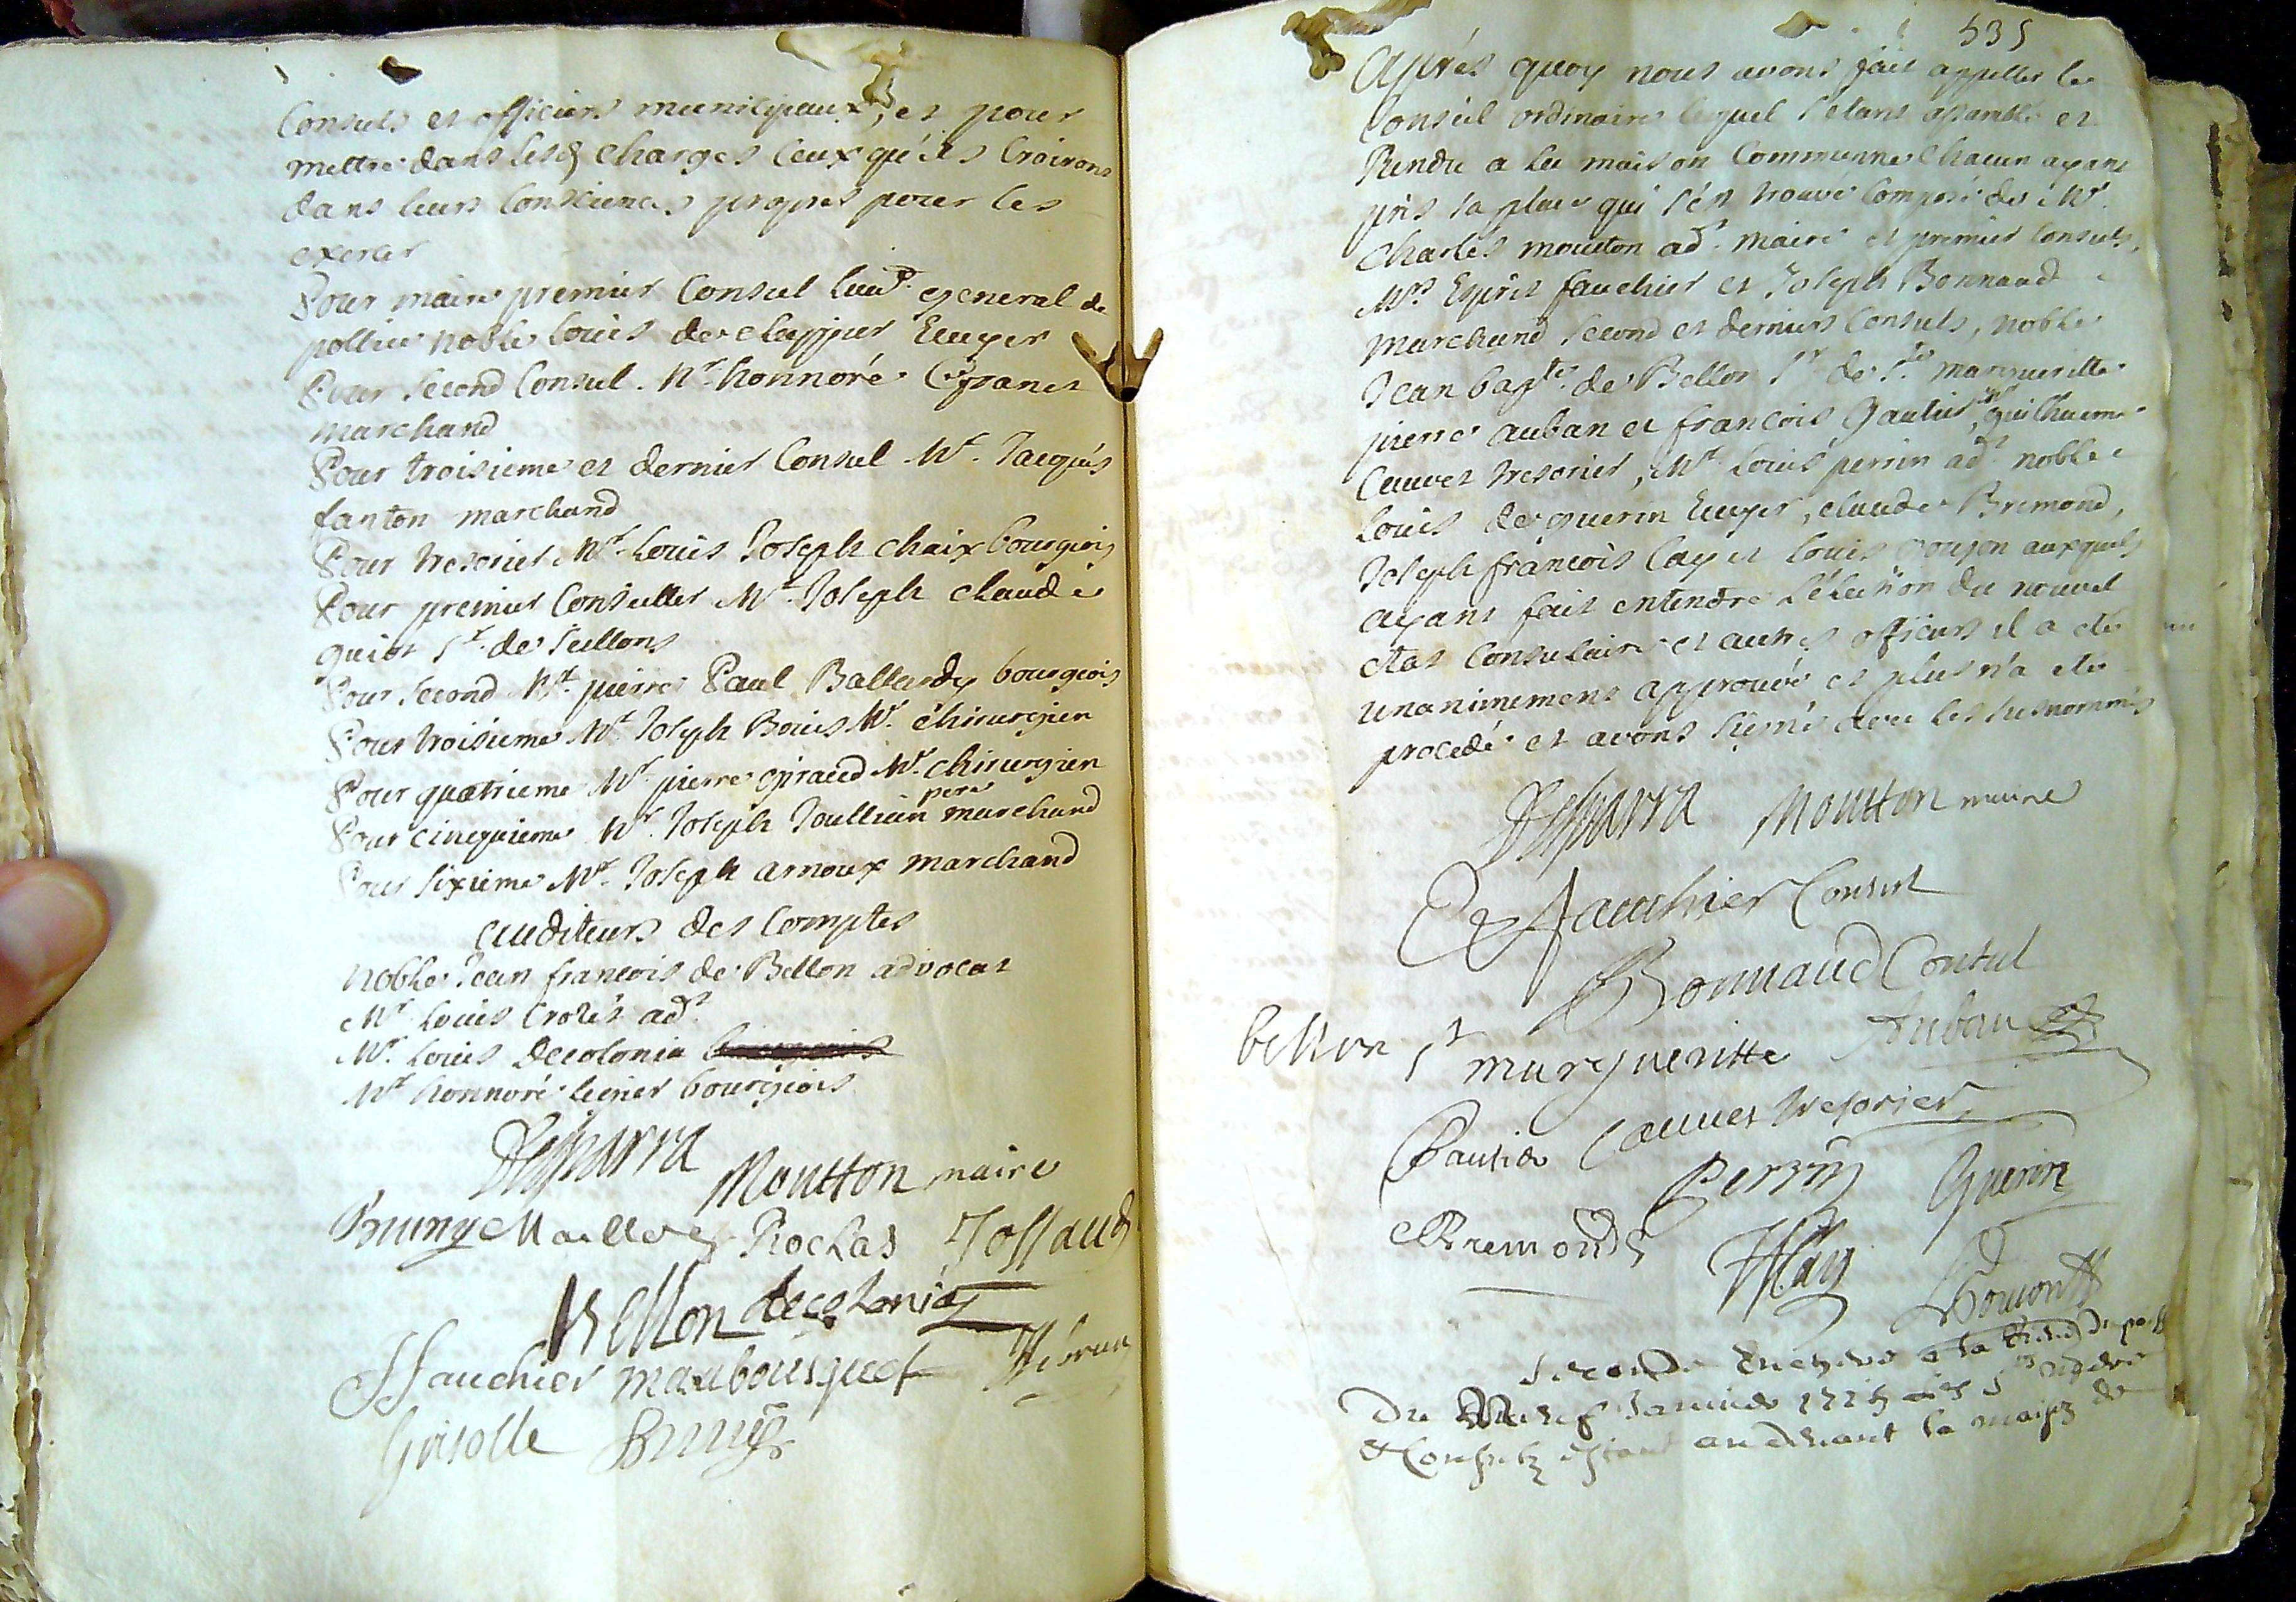 Consuls et officiers municipaux, et pour
mettre dans lesd charges Ceux qu'ils Croiront
dans leurs Consciences propres pour les
exercer
Pour maire premier Consul lieut general de
pollice noble louis de clappier Ecuyer
Pour second Consul Mr honnoré
marchand
Pour troisieme et dernier Consul Mr Jacques
fanton marchand
Pour tresorier Mr Louis Joseph chaix bourgeois
Pour premier Conseiller Mr Joseph claude
guiot Sr de seillons
Pour second Mr pierre Paul Ballardy bourgeois
Pour troisieme Mr Joseph Bouis Mr chirurgien
Pour quatrieme Mr pierre giraud Mr chirurgien
Pour cinquieme Mr Joseph Joullian pere marchand
Pour sixieme Mr Joseph arnoux marchand
auditeurs des Comptes
noble Jean francois de Bellon advocat
Mr Louis crozet adt
Mr Louis decolonia
Mr honnoré legier bourgeois
Desparra Moutton maire
Bruny Rochas Jossaud
Bellon decolonia
Fauchier maubousquet
Grisolle Bruny
535
Aprés quoy nous avons fait appeller le
Conseil ordinaire lequel s'etant assamblé et
Rendu a la maison Commune chacun ayant
pris sa place qui s'est trouvé Composé de Mr
charles moutton adt maire et premier Consuls,
Mrs Esprit fauchier et Joseph Bonnaud
marchand second et derniers Consuls, noble
Jean bapte de Bellon Sr de Ste margueritte
pierre auban et francois gautier, guilheume
Cauvet tresorier, Mr Louis perrin adt noble
Louis de guerin Ecuyer, claude Bremond,
Joseph francois lay et louis auxquels
ayant fait entendre l'élection du nouvel
etat Consulaire et autres officiers il a eté
unanimement approuvé et plus n'a eté
procedé et avons signé avec les susnommés
Desparra Moutton maire
Fauchier Consul
Bonnaud Consul
bellon st margueritte Auban
Gautier Cauvet tresorier
Perrin Guerin
Bremond Lay
seconde Enchere
Du neuf Janvier
Consulz estant au devant la maison de